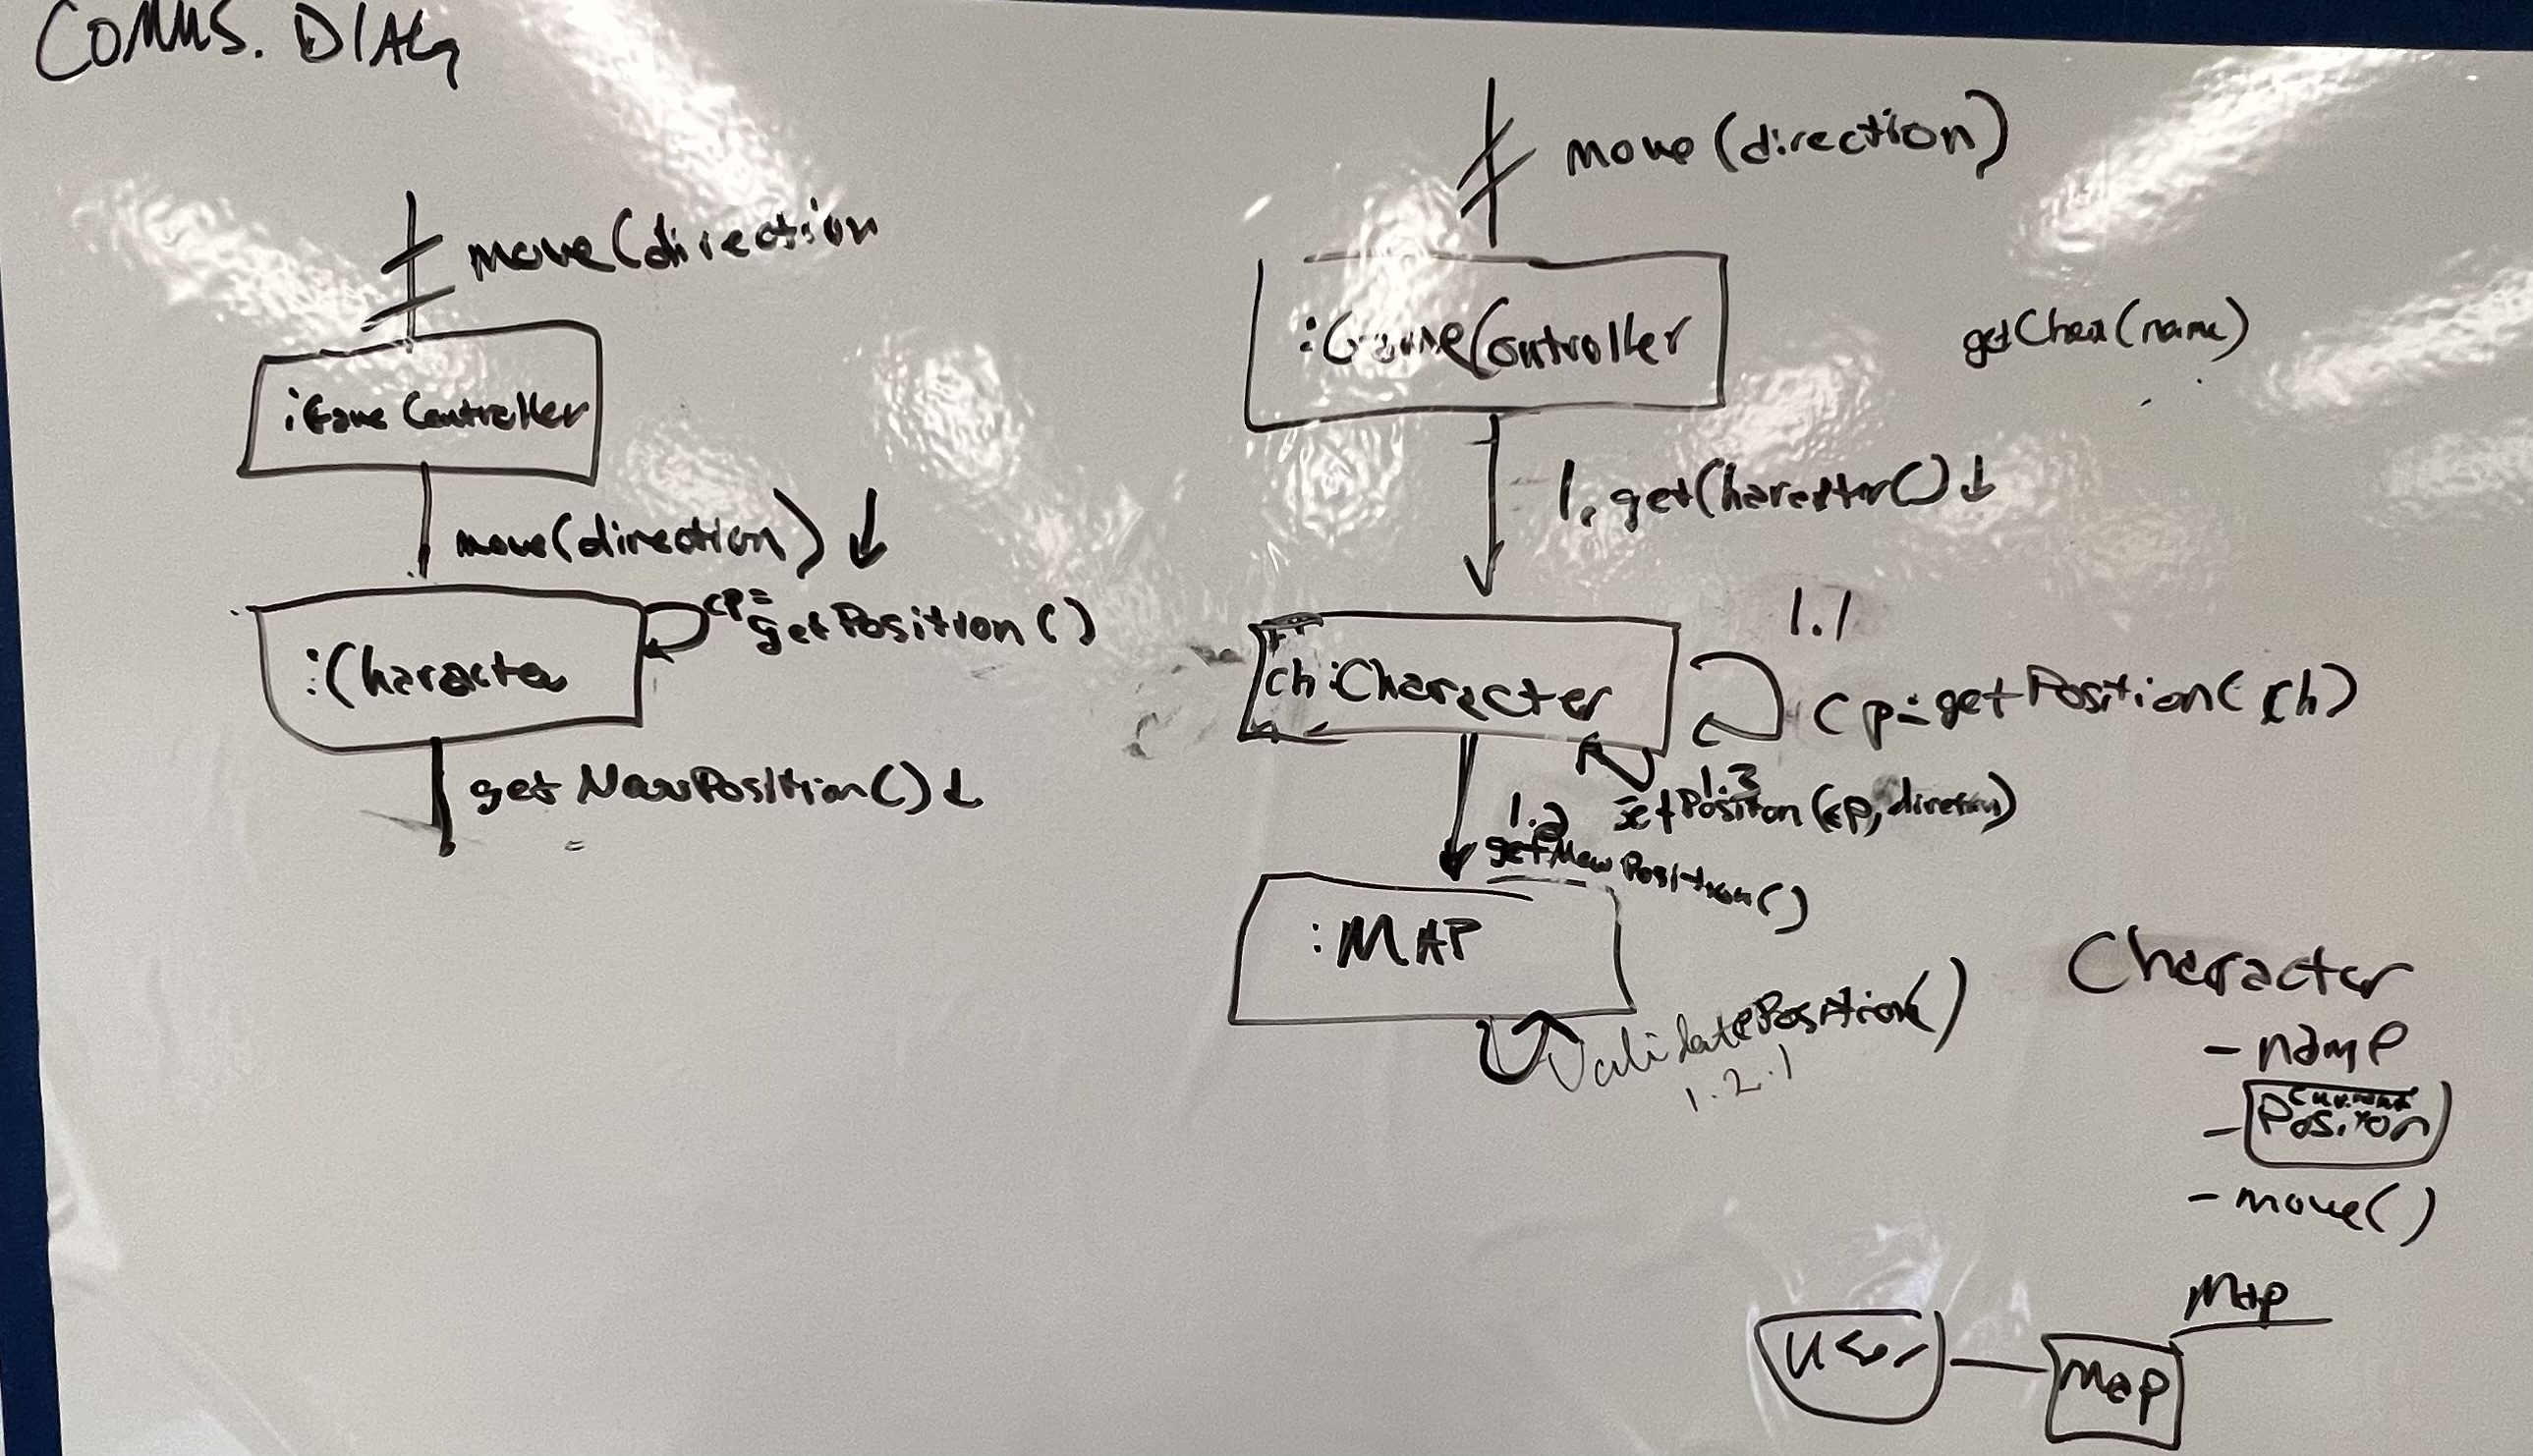 COMMS. DIAG
move(direction
:Game Controller
move(direction) ↓
:Character
cp=
getPosition()
getNewPosition() ↓
move(direction)
:GameController
getChar(name)
1. getCharacter() ↓
ch:Character
1.1
cp=getPosition(ch)
1.3
setPosition(cp, direction)
1.2
getNewPosition()
:MAP
ValidatePosition()
1.2.1
Character
- name
- current
Position
- move()
User
Map
Map